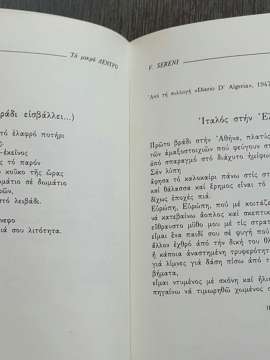 Τὸ μικρὸ ΔΕΝΤΡΟ
ράδι εἰσβάλλει...)
τὸ ἐλαφρὸ ποτήρι
-ἐκείνος
ς τὸ παρόν
κοῦφο τῆς ὥρας
μάτιο σὲ δωμάτιο
ὸ λειβάδι.
νεφο
ιά σου λιτότητα.
V. SERENI
Ἀπὸ τὴ συλλογὴ «Diario D' Algeria», 1947
Ἰταλὸς στὴν Ἑλ
Πρῶτο βράδι στὴν Ἀθήνα, πλατὺς
τῶν ἁμαξοστοιχιῶν ποὺ φεύγουν στ
ἀπὸ σπαραγμὸ στὸ διάχυτο ἡμίφω
Σὰν λύπη
ἄφησα τὸ καλοκαίρι πάνω στὶς στ
καὶ θάλασσα καὶ ἔρημος εἶναι τὸ
δίχως ἐποχὲς πιά.
Εὐρώπη, Εὐρώπη, ποὺ μὲ κοιτάζ
νὰ κατεβαίνω ἄοπλος καὶ σκεπτικ
εὔθραυστο μύθο μου μὲ τὶς στρατ
εἶμαι ἕνα παιδί σου σὲ φυγὴ ποὺ
ἄλλον ἐχθρὸ ἀπὸ τὴν δική του θλ
ἢ κάποια ἀναστημένη τρυφερότητ
γιὰ λίμνες γιὰ δάση πίσω ἀπ
βήματα,
εἶμαι ντυμένος μὲ σκόνη καὶ ἥλιο
πηγαίνω νὰ τιμωρηθῶ χωμένος σ